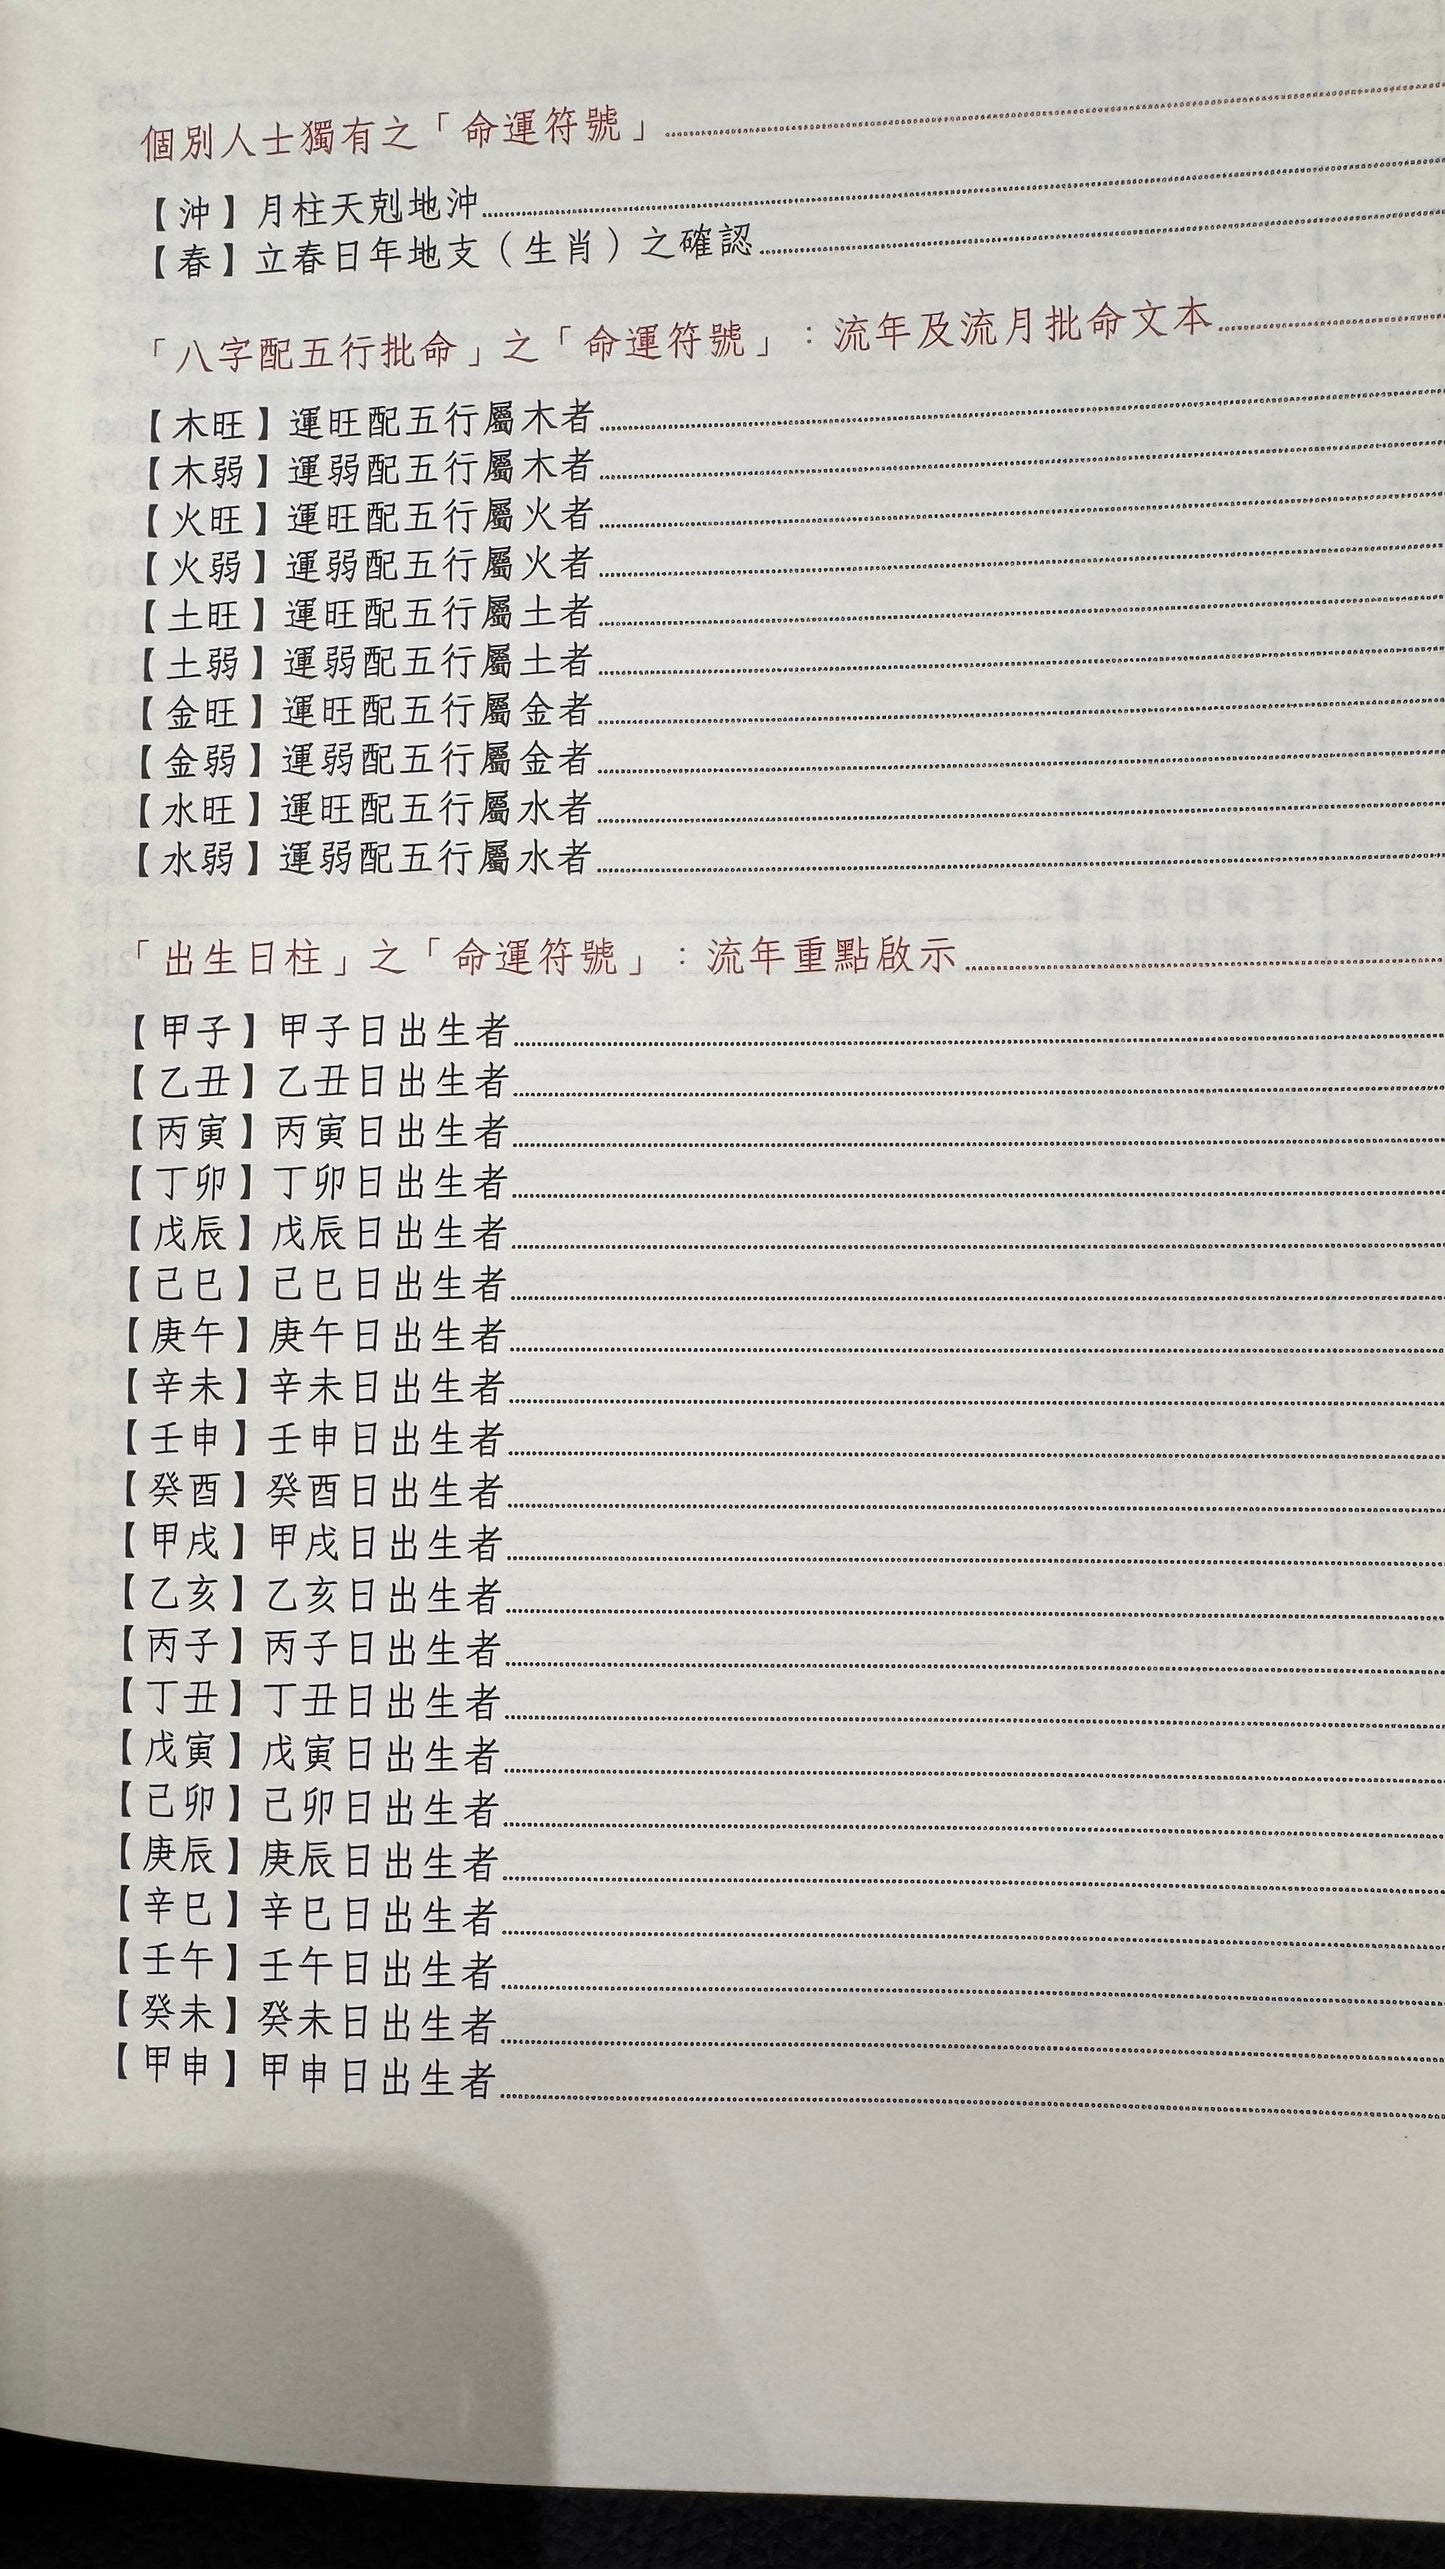 個別人士獨有之「命運符號」
【沖】月柱天剋地沖
【春】立春日年地支（生肖）之確認
「八字配五行批命」之「命運符號」：流年及流月批命文本
【木旺】運旺配五行屬木者
【木弱】運弱配五行屬木者
【火旺】運旺配五行屬火者
【火弱】運弱配五行屬火者
【土旺】運旺配五行屬土者
【土弱】運弱配五行屬土者
【金旺】運旺配五行屬金者
【金弱】運弱配五行屬金者
【水旺】運旺配五行屬水者
【水弱】運弱配五行屬水者
「出生日柱」之「命運符號」：流年重點啟示
【甲子】甲子日出生者
【乙丑】乙丑日出生者
【丙寅】丙寅日出生者
【丁卯】丁卯日出生者
【戊辰】戊辰日出生者
【己巳】己巳日出生者
【庚午】庚午日出生者
【辛未】辛未日出生者
【壬申】壬申日出生者
【癸酉】癸酉日出生者
【甲戌】甲戌日出生者
【乙亥】乙亥日出生者
【丙子】丙子日出生者
【丁丑】丁丑日出生者
【戊寅】戊寅日出生者
【己卯】己卯日出生者
【庚辰】庚辰日出生者
【辛巳】辛巳日出生者
【壬午】壬午日出生者
【癸未】癸未日出生者
【甲申】甲申日出生者